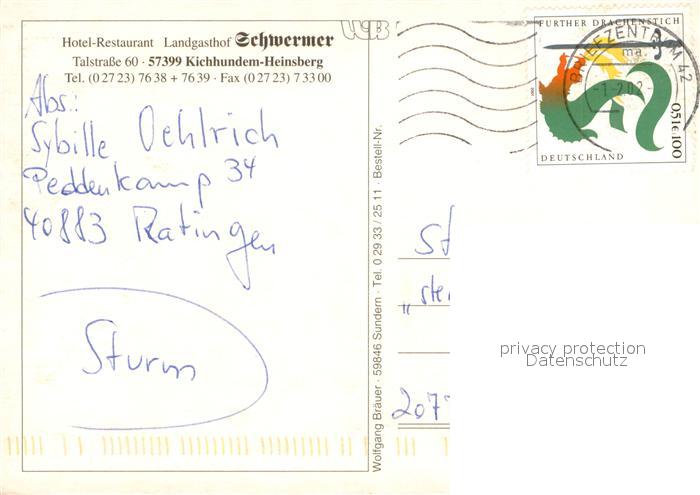 WB
Hotel-Restaurant Landgasthof Schwermer
Talstraße 60 · 57399 Kichhundem-Heinsberg
Tel. (0 27 23) 76 38 + 76 39 · Fax (0 27 23) 7 33 00
Abs.:
Sybille Oehlrich
Peddenkamp 34
40883 Ratingen
Sturm
Wolfgang Bräuer · 59846 Sundern · Tel. 0 29 33 / 25 11 · Bestell-Nr.
FURTHER DRACHENSTICH
BRIEFZENTRUM 42
ma
-1-2.02-
0,51€ 100
DEUTSCHLAND
St
„ste
207
privacy protection
Read the Description